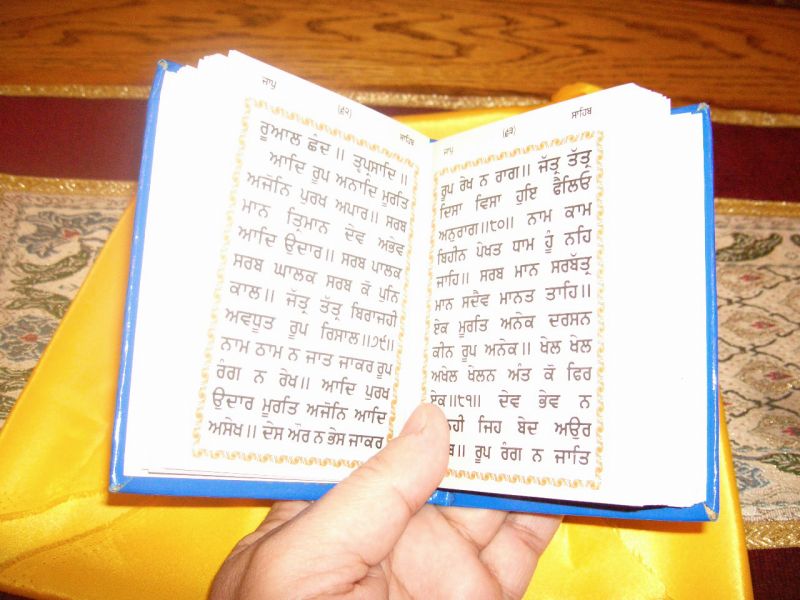 ਜਾਪੁ
(੬੨)
ਸਾਹਿਬ
ਰੂਆਲ ਛੰਦ ॥ ਤ੍ਵਪ੍ਰਸਾਦਿ ॥
ਆਦਿ ਰੂਪ ਅਨਾਦਿ ਮੂਰਤਿ
ਅਜੋਨਿ ਪੁਰਖ ਅਪਾਰ॥ ਸਰਬ
ਮਾਨ ਤ੍ਰਿਮਾਨ ਦੇਵ ਅਭੇਵ
ਆਦਿ ਉਦਾਰ॥ ਸਰਬ ਪਾਲਕ
ਸਰਬ ਘਾਲਕ ਸਰਬ ਕੋ ਪੁਨਿ
ਕਾਲ॥ ਜੱਤ੍ਰ ਤੱਤ੍ਰ ਬਿਰਾਜਹੀ
ਅਵਧੂਤ ਰੂਪ ਰਿਸਾਲ॥੭੯॥
ਨਾਮ ਠਾਮ ਨ ਜਾਤ ਜਾਕਰ ਰੂਪ
ਰੰਗ ਨ ਰੇਖ॥ ਆਦਿ ਪੁਰਖ
ਉਦਾਰ ਮੂਰਤਿ ਅਜੋਨਿ ਆਦਿ
ਅਸੇਖ॥ ਦੇਸ ਔਰ ਨ ਭੇਸ ਜਾਕਰ
ਜਾਪੁ
(੬੩)
ਸਾਹਿਬ
ਰੂਪ ਰੇਖ ਨ ਰਾਗ॥ ਜੱਤ੍ਰ ਤੱਤ੍ਰ
ਦਿਸਾ ਵਿਸਾ ਹੁਇ ਫੈਲਿਓ
ਅਨੁਰਾਗ॥੮੦॥ ਨਾਮ ਕਾਮ
ਬਿਹੀਨ ਪੇਖਤ ਧਾਮ ਹੂੰ ਨਹਿ
ਜਾਹਿ॥ ਸਰਬ ਮਾਨ ਸਰਬੱਤ੍ਰ
ਮਾਨ ਸਦੈਵ ਮਾਨਤ ਤਾਹਿ॥
ਏਕ ਮੂਰਤਿ ਅਨੇਕ ਦਰਸਨ
ਕੀਨ ਰੂਪ ਅਨੇਕ॥ ਖੇਲ ਖੇਲ
ਅਖੇਲ ਖੇਲਨ ਅੰਤ ਕੋ ਫਿਰ
ਏਕ॥੮੧॥ ਦੇਵ ਭੇਵ ਨ
ਜਿਹ ਬੇਦ ਅਉਰ
ਰੂਪ ਰੰਗ ਨ ਜਾਤਿ